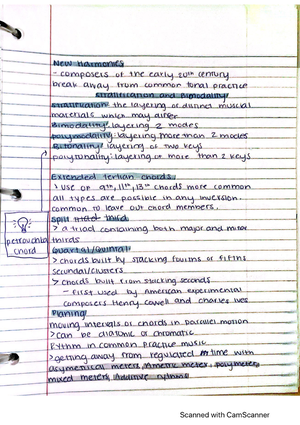 New Harmonics
- composers of the early 20th century
break away from common tonal practice
Stratification and Bimodality
Stratification: the layering of distinct musical
materials which may differ
Bimodality: layering 2 modes
polymodality: layering more than 2 modes
Bitonality: layering of two keys
polytonality: layering of more than 2 keys
Extended Tertian Chords
> use of 9th, 11th, 13th chords more common
all types are possible in any inversion.
common to leave out chord members.
Split third
> a triad containing both major and minor
thirds
petrouchka
chord
Quartal/Quintal
> chords built by stacking fourths or fifths
secundal/clusters
> chords built from stacking seconds
- first used by American experimental
composers Henry Cowell and Charles Ives
Planing
moving intervals or chords in parallel motion
> can be diatonic or chromatic
Rythm in common practice music
> getting away from regulated time with
asymetrical meters, Ametric meter, polymeter,
mixed meters, Additive rythms
Scanned with CamScanner